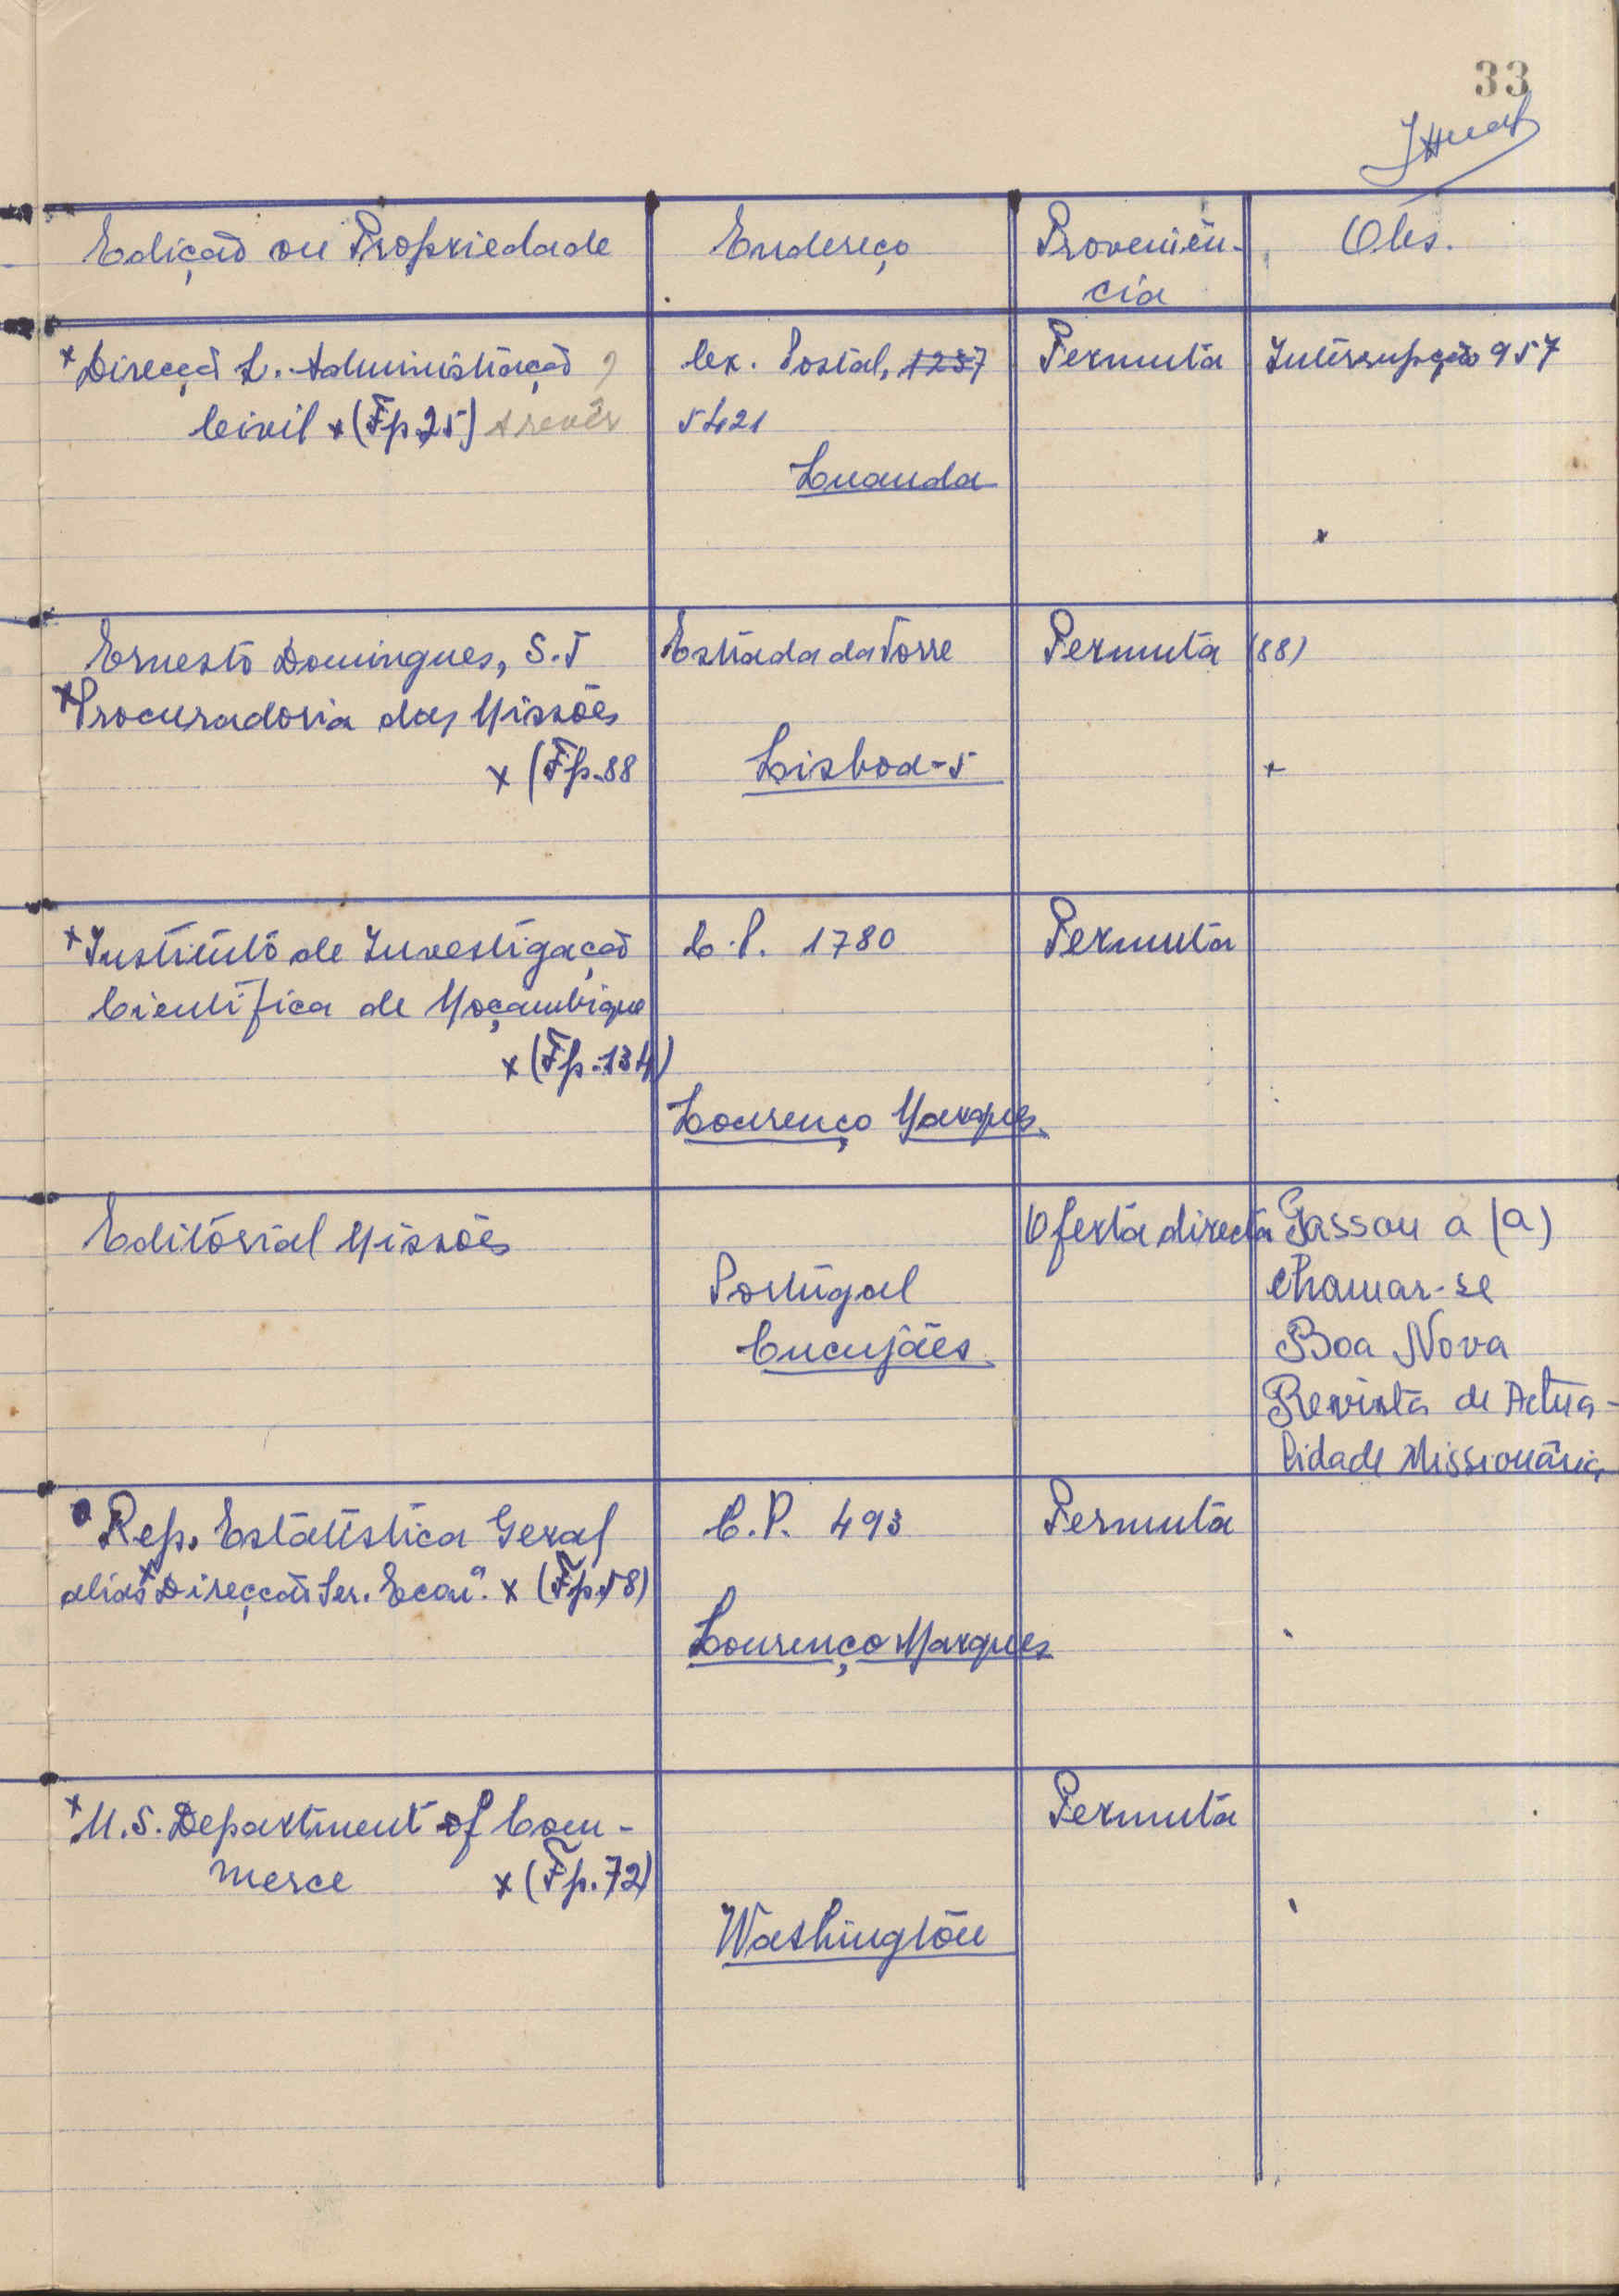 33
Edição ou Propriedade Endereço Proveniên- Obs.
cia
x Direcçã S. Administração Cx. Postal, 1237 Permuta Interrupção 957
Civil x (Fp 25) A rever 5421
Luanda
x
Ernesto Domingues, S.J Estrada da Torre Permuta (88)
x Procuradoria das Missões
x (Fp.88 Lisboa-5 x
x Instituto de Investigação C.P. 1780 Permuta
Científica de Moçambique
x (Fp.134)
Lourenço Marques
Editorial Missões Oferta directa Passou a (a)
Portugal chamar-se
Cucujães Boa Nova
Revista de Actua-
lidade Missionária
Rep. Estatística Geral C.P. 493 Permuta
aliás x Direcção Ser. Econ. x (Fp.58)
Lourenço Marques
x U.S. Department of Com- Permuta
merce x (Fp.72)
Washington